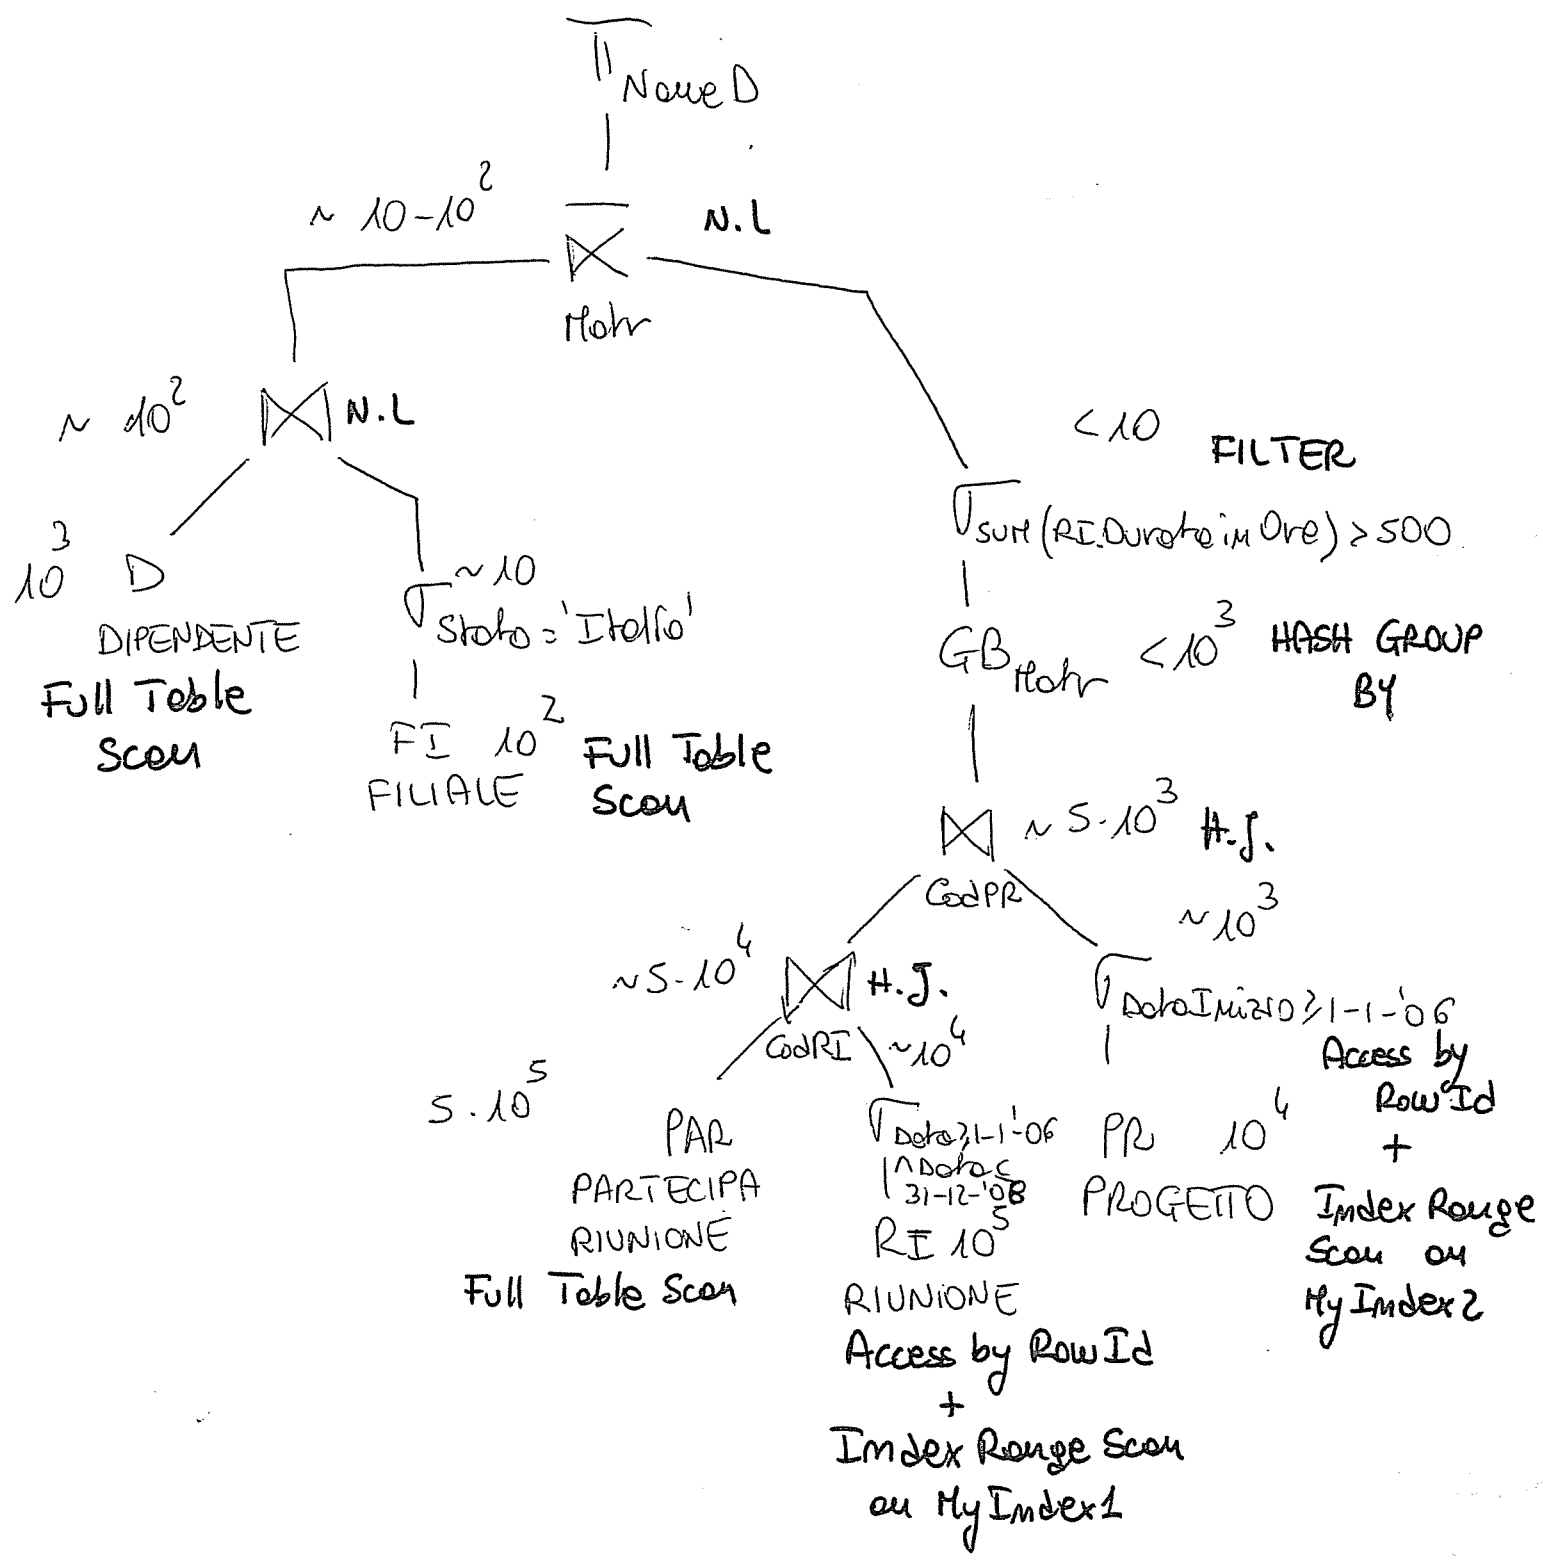 π NomeD
~ 10-10²
N.L
⋈
Matr
~ 10²
⋈ N.L
<10
FILTER
σ SUM(RI.DurataInOre) > 500
10³ D
DIPENDENTE
Full Table
Scan
~10
σ Stato = 'Italia'
FI 10²
FILIALE
Full Table
Scan
GB Matr
<10³
HASH GROUP
BY
⋈ ~ 5·10³ H.J.
CodPR
~5·10⁴ ⋈ H.J.
CodRI
~10³
σ DataInizio ≥ 1-1-'06
Access by
Row Id
+
Index Range
Scan on
MyIndex2
PR 10⁴
PROGETTO
5·10⁵
PAR
PARTECIPA
RIUNIONE
Full Table Scan
~10⁴
σ Data ≥ 1-1-'06
∧ Data ≤
31-12-'08
RI 10⁵
RIUNIONE
Access by Row Id
+
Index Range Scan
on MyIndex1